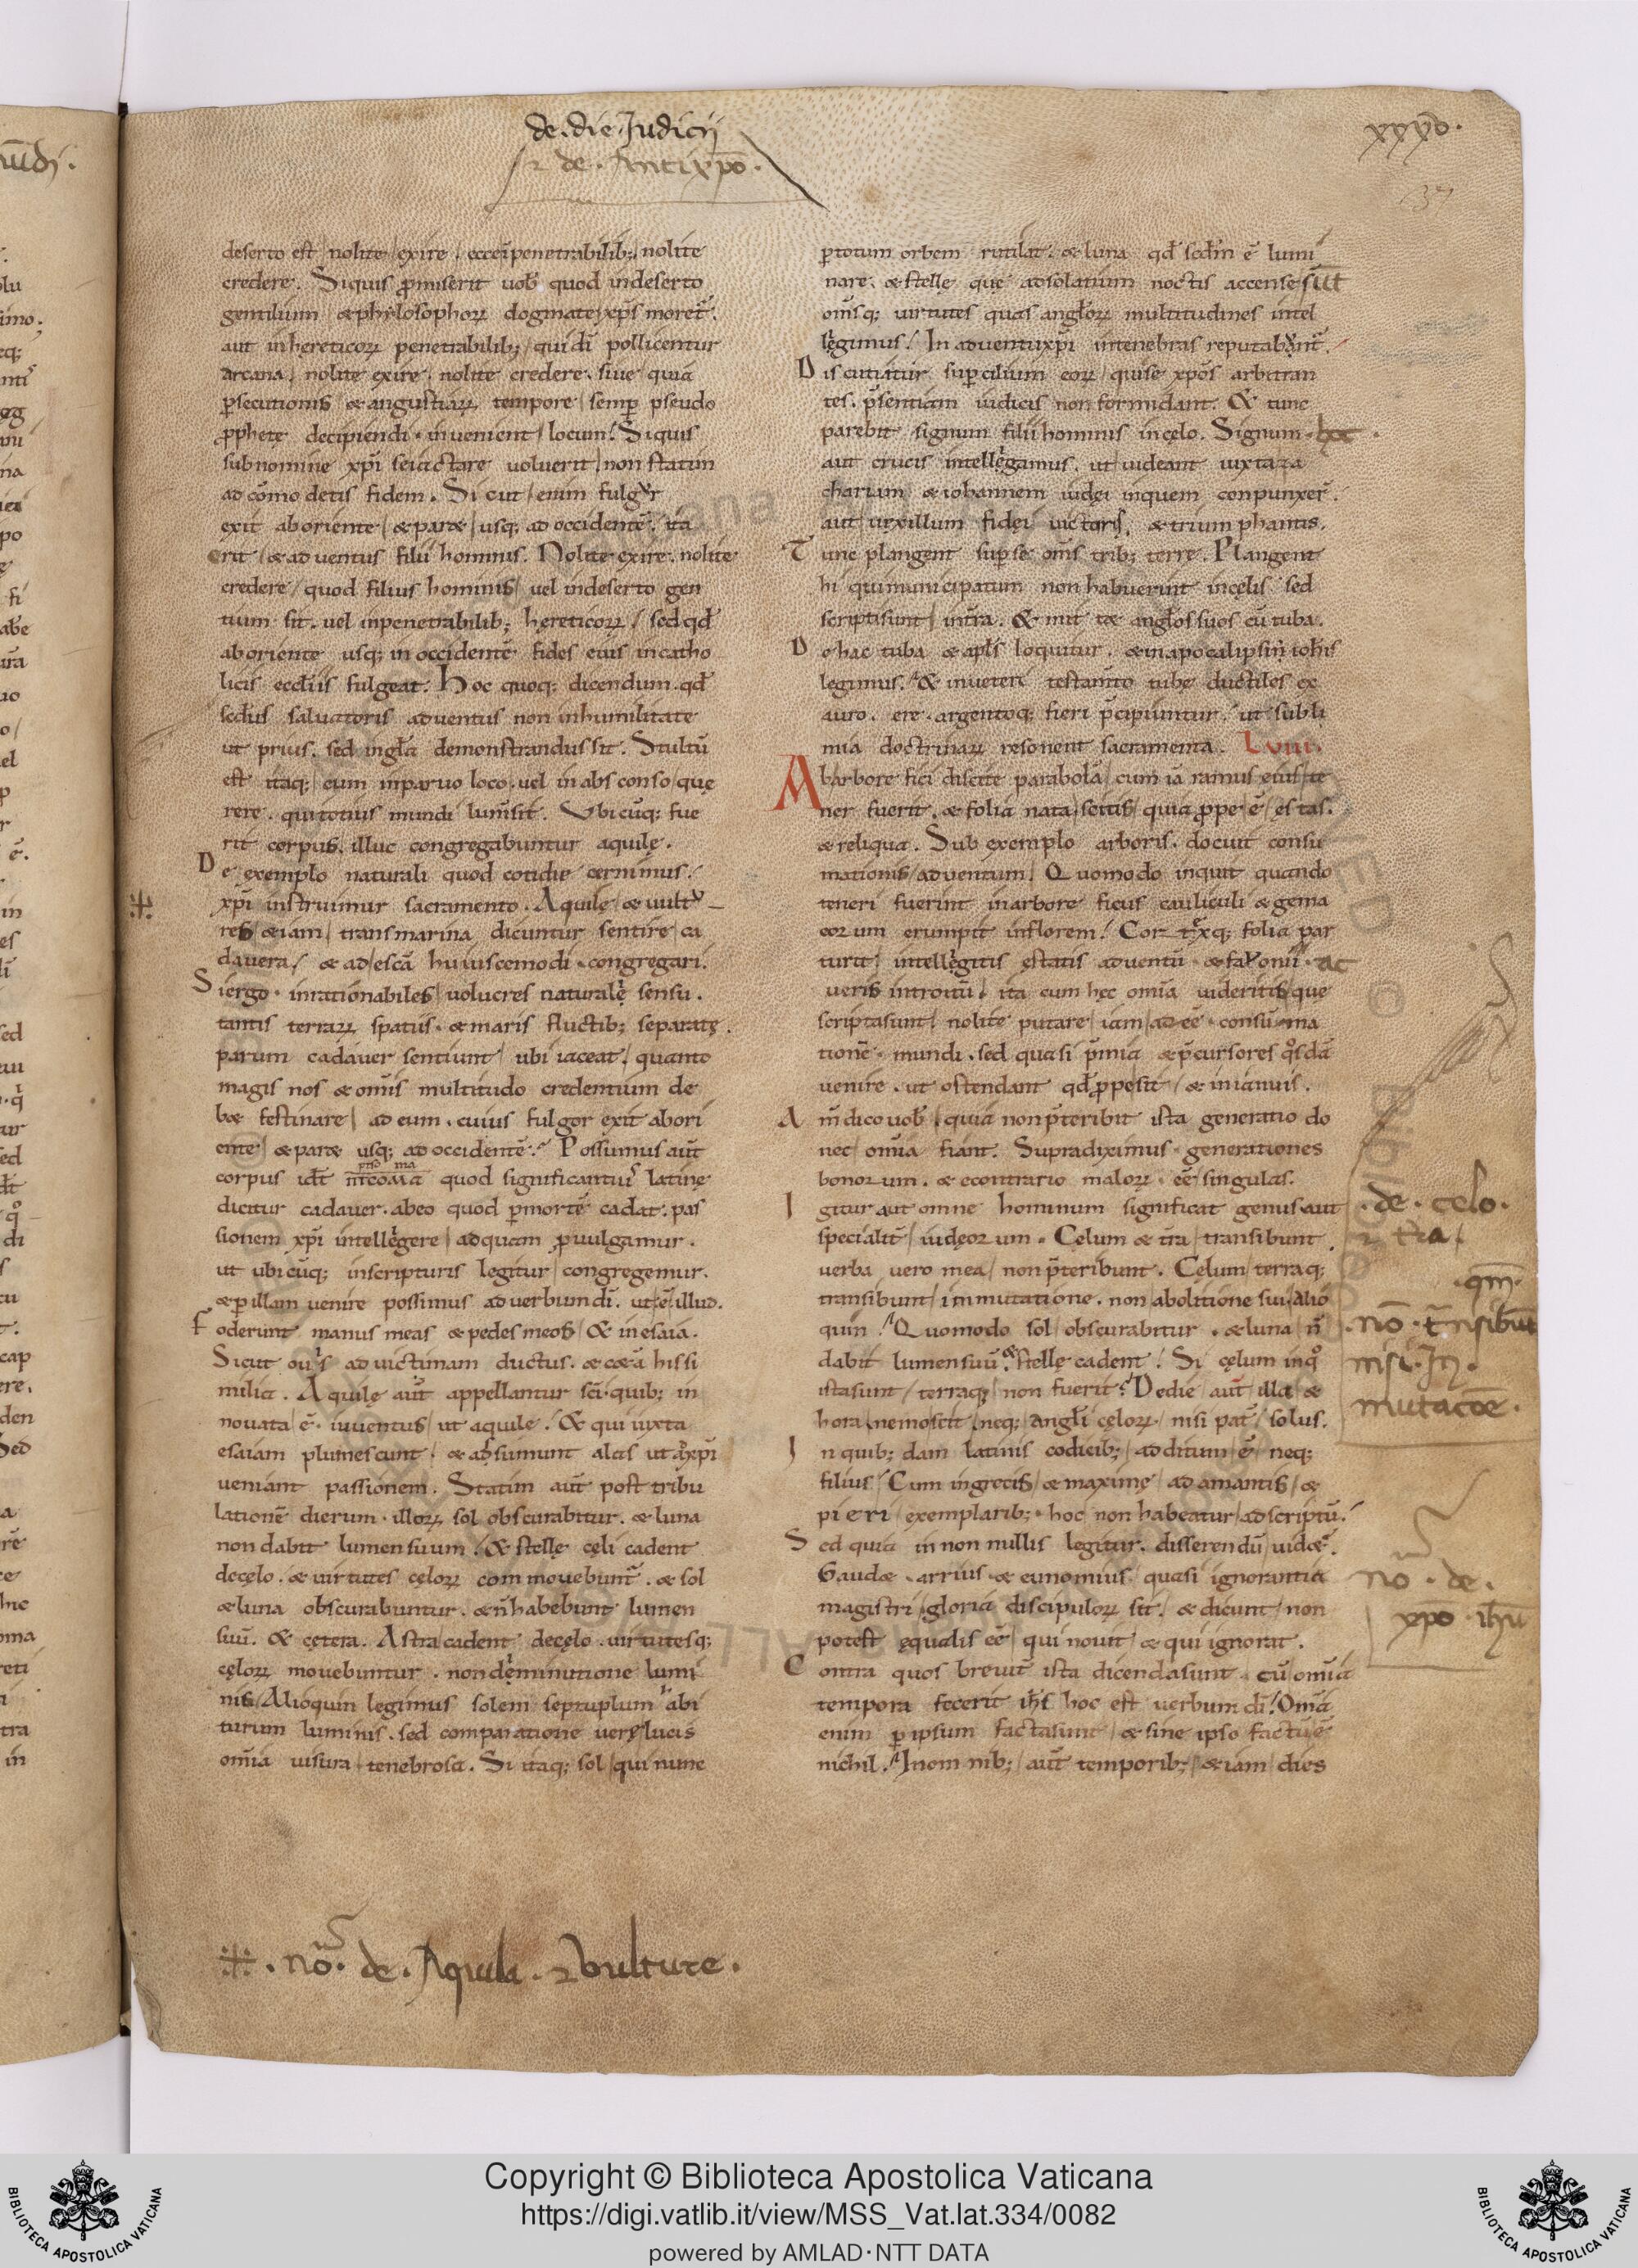 de. die. Judicij
⁊ de. Antixp̄o.
xxxv̊.
37
deserto est nolite exire. ecce īpenetrabilib; nolite
credere. Siquis p̄miserit uob̄ quod indeserto
gentilium & philosophoꝝ dogmate xp̄s moret᷑.
aut inhereticoꝝ penetrabilib; qui dī pollicentur
arcana. nolite exire. nolite credere. siue quia
ꝑsecutionis & angustiaꝝ tempore semꝑ pseudo
ꝓphetę decipiendi inuenient locum. Siquis
subnomine xp̄i seiactare uoluerit non statim
ad cōmodetis fidem. Sicut enim fulgur
exit aboriente & paret usq; ad occidentē. ita
erit & aduentus filii hominis. Nolite exire. nolite
credere quod filius hominis uel indeserto gen
tium sit. uel inpenetrabilib; hęreticoꝝ sed qd̄
aboriente usq; in occidentē fides eius incatho
licis eccl̄iis fulgeat. Hoc quoq; dicendum. qd̄
sed̄us saluatoris aduentus non inhumilitate
ut prius. sed ingl̄a demonstrandus sit. Stultū
est itaq; eum inparuo loco. uel in absconso quę
rere. qui totius mundi lum̄ sit. Vbicūq; fue
rit corpus. illuc congregabuntur aquilę.
De exemplo naturali quod cotidie cernimus.
xp̄i instruimur sacramento. Aquilę & uultu
res & iam transmarina dicuntur sentire ca
dauera & ad escā huiuscemodi congregari.
Siergo inrationabiles uolucres naturalę sensu.
tantis terraꝝ spatiis & maris fluctib; separatę.
paruum cadauer sentiunt ubi iaceat. quanto
magis nos & om̄is multitudo credentium de
bet festinare ad eum. cuius fulgor exit abori
ente & paret usq; ad occidentē. Possumus aūt
corpus id̄ē quod significantius latine
dicitur cadauer. abeo quod ꝑmortē cadat. pas
sionem xp̄i intellegere ad quam ꝓuulgamur.
ut ubicūq; inscripturis legitur congregemur.
& ꝑ illam uenire possimus ad uerbum dī. ut ē illud.
Foderunt manus meas & pedes meos. & in esaia.
Sicut ouis ad uictimam ductus. & cetera hissi
milia. Aquilę aūt appellantur sc̄i quib; in
nouata ē. iuuentus ut aquile. & qui iuxta
esaiam plumescunt & adsumunt alas ut ad xp̄i
ueniant passionem. Statim aūt post tribu
lationē dierum illoꝝ sol obscurabitur. & luna
non dabit lumen suum. & stellę cęli cadent
decęlo. & uirtutes cęloꝝ commouebunt᷑. & sol
& luna obscurabuntur. & n̄ habebunt lumen
suū. & cętera. Astra cadent decęlo. uirtutesq;
cęloꝝ mouebuntur. non deminutione lumi
nis. Alioquin legimus solem septuplum abi
turum luminis. sed comparatione uerę lucis
om̄ia uisura tenebrosa. Si itaq; sol qui nunc
ꝑ totum orbem rutilat. & luna qd̄ scd̄m ē lumi
nare. & stellę quę adsolatium noctis accense sūt
om̄sq; uirtutes quas anglōꝝ multitudines intel
legimus. In aduentu xp̄i intenebras reputabunt᷑.
Discutiatur suꝑcilium eoꝝ qui se xp̄os arbitran
tes. p̄sentiam iudicis non formidant. & tunc
parebit signum filii hominis incęlo. Signum hic
aut crucis intellegamus. ut uideant iuxta za
chariam & iohannem iudęi inquem conpunxer̄.
aut uexillum fidei uictoris. & triumphantis.
Tunc plangent suꝑse om̄s trib; terre. Plangent
hi qui municipatum non habuerint incęlis. sed
scripti sunt interra. & mittet anglōs suos cū tuba.
Dehac tuba & apl̄s loquitur. & in apocalipsin ioh̄is
legimus. & in ueteri testam̄to tubę ductiles ex
auro. ere. argentoq; fieri p̄cipiuntur. ut subli
mia doctrinaꝝ resonent sacramenta. Lviii.
Abarbore fici discite parabolā cum iā ramus eius te
ner fuerit. & folia nata. scitis quia ꝓpe ē ęstas.
& reliqua. Sub exemplo arboris. docuit consu
mationis aduentum. Quomodo inquit quando
teneri fuerint inarbore ficus cauliculi & gema
eorum erumpit inflorem. Cortexq; folia par
turit intellegitis ęstatis aduentū & fauonii ac
ueris introitū. ita cum hec om̄ia uideritis que
scripta sunt nolite putare iam ad eē consuma
tionē mundi. sed quasi p̄mia & p̄cursores qos̄dā
uenire. ut ostendant qd̄ ꝓpe sit & inianuis.
Am̄ dico uob̄ quia non p̄teribit ista generatio do
nec om̄ia fiant. Supradiximus generationes
bonorum. & econtrario maloꝝ eē singulas.
Igitur aut omne hominum significat genus aut
specialit᷑ iudęorum. Cęlum & tr̄a transibunt
uerba uero mea non p̄teribunt. Cęlum terraq;
transibunt immutatione. non abolitione sui. Alio
quin Quomodo sol obscurabitur. & luna n̄
dabit lumen suū. & stellę cadent. Si cęlum inqo
ista sunt terraq; non fuerit. Dedie aūt illa &
hora nemo scit neq; angl̄i cęloꝝ. nisi pat̄ solus.
Inquib; dam latinis codicib; additum ē neq;
filius. Cum ingrecis & maxime adamantis &
pieri exemplarib; hoc non habeatur adscriptū.
Sed quia innonnullis legitur. disserendū uidet᷑.
Gaudet arrius & eunomius quasi ignorantia
magistri gloria discipuloꝝ sit. & dicunt non
potest equalis eē qui nouit & qui ignorat.
Contra quos breuit᷑ ista dicenda sunt. cū om̄ia
tempora fecerit ih̄s hoc est uerbum dī. Om̄ia
enim ꝑ ipsum facta sunt & sine ipso factū ē
nichil. Inomnib; aūt temporib; & iam dies
.de. celo.
⁊ tr̄a
.qm̄.
.nō. tr̄nsibūt
nisi. In.
mutacōe.
nō. de.
xp̄o. ih̄u
. nō. de. Aquila. ⁊ vulture.
Copyright © Biblioteca Apostolica Vaticana
https://digi.vatlib.it/view/MSS_Vat.lat.334/0082
powered by AMLAD·NTT DATA
BIBLIOTECA APOSTOLICA VATICANA
BIBLIOTECA APOSTOLICA VATICANA